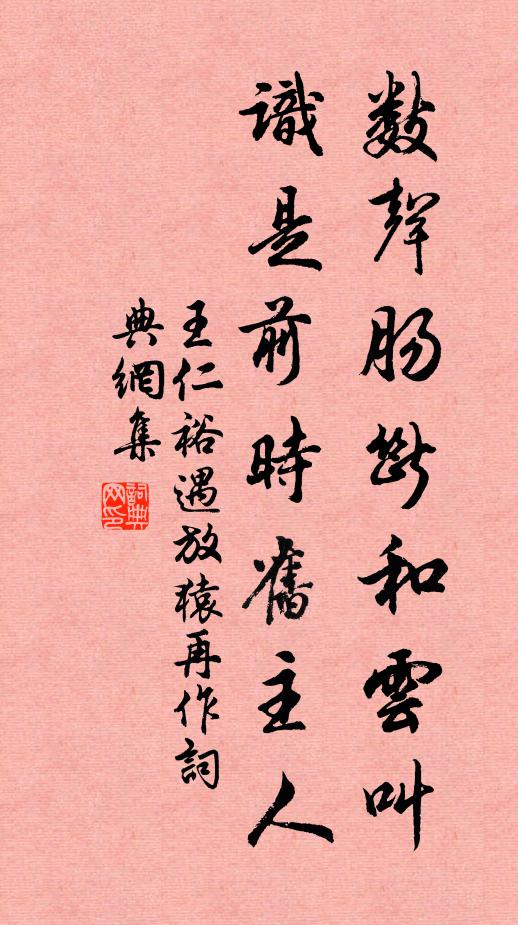 數聲腸斷和雲叫
識是前時舊主人
王仁裕遇放猿再作詞
典網集
詞典
网印